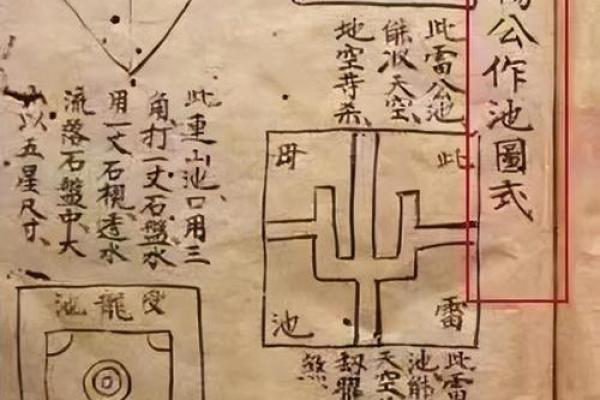 公作池圖式
此雷公池
能收天空
地空苛杀
此雷
母池
此雷
池能
天空
劫曜
煞
此連山池口用三
角打一丈石盤水
用一丈石梘透水
流落石盤中大
以五星尺寸
龍池